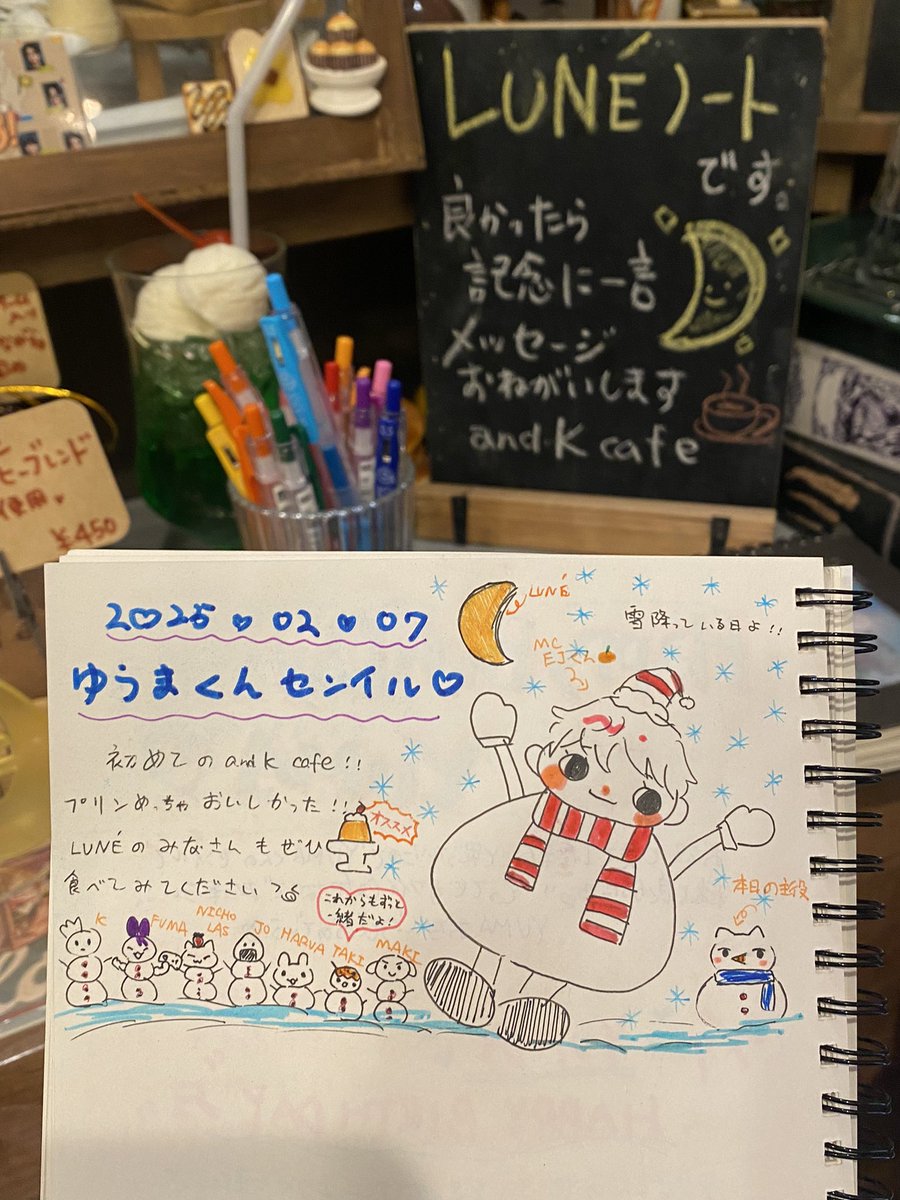 LUNÉノート
です。
良かったら
記念に一言
メッセージ
おねがいします
and K cafe
ビーブレンド
使用
¥450
2025 ♥ 02 ♥ 07
ゆうまくん センイル♡
LUNÉ
MC
EJくん
雪降っている日よ!!
初めての and K cafe!!
プリンめっちゃおいしかった!!
オススメ
LUNÉのみなさんもぜひ
食べてみてください
これからもずっと
一緒だよ!
本日の主役
K
FUMA
NICHO
LAS
JO
HARUA
TAKI
MAKI